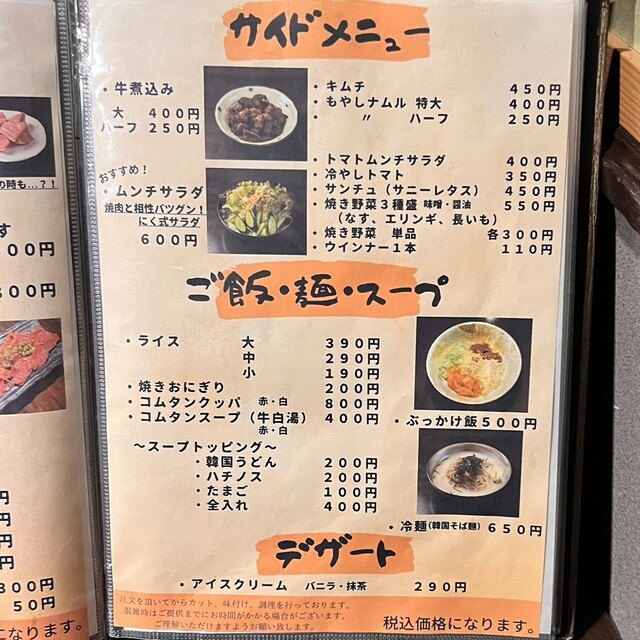 サイドメニュー
・牛煮込み
大 400円
ハーフ 250円
・キムチ 450円
・もやしナムル 特大 400円
・ 〃 ハーフ 250円
おすすめ！
・ムンチサラダ
焼肉と相性バツグン！
にく式サラダ
600円
・トマトムンチサラダ 400円
・冷やしトマト 350円
・サンチュ（サニーレタス） 450円
・焼き野菜３種盛 味噌・醤油 550円
（なす、エリンギ、長いも）
・焼き野菜 単品 各300円
・ウインナー１本 110円
ご飯・麺・スープ
・ライス 大 390円
中 290円
小 190円
・焼きおにぎり 200円
・コムタンクッパ 赤・白 800円
・コムタンスープ（牛白湯） 400円
赤・白
・ぶっかけ飯500円
〜スープトッピング〜
・韓国うどん 200円
・ハチノス 200円
・たまご 100円
・全入れ 400円
・冷麺(韓国そば麺) 650円
デザート
・アイスクリーム バニラ・抹茶 290円
注文を頂いてからカット、味付け、調理を行っております。
混雑時はご提供までにお時間がかかる場合がございます。
ご理解いただけますようお願い致します。
税込価格になります。
の時も…？！
す
00円
800円
円
円
円
円
300円
50円
になります。